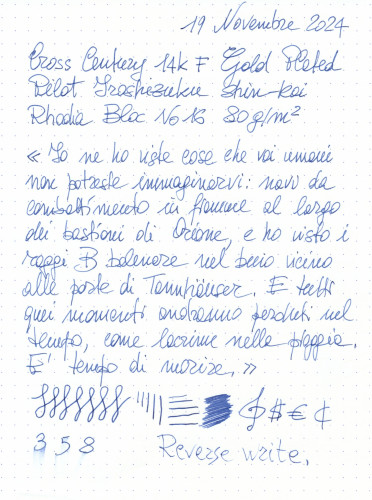 19 Novembre 2024
Cross Century 14k F Gold Plated
Pilot Iroshizuku Shin-kai
Rhodia Bloc No 16 80 g/m²
« Io ne ho viste cose che voi umani
non potreste immaginarvi: navi da
combattimento in fiamme al largo
dei bastioni di Orione, e ho visto i
raggi B balenare nel buio vicino
alle porte di Tannhäuser. E tutti
quei momenti andranno perduti nel
tempo, come lacrime nella pioggia.
E' tempo di morire. »
$ € ¢
3 5 8 Reverse write.